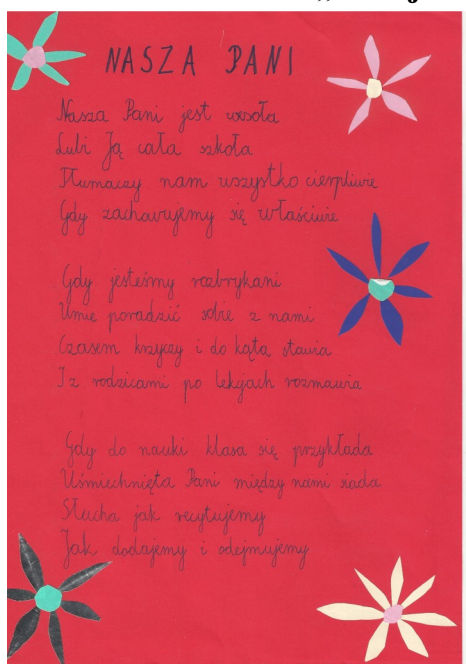 NASZA PANI
Nasza Pani jest wesoła
Lubi Ją cała szkoła
Tłumaczy nam wszystko cierpliwie
Gdy zachowujemy się właściwie
Gdy jesteśmy rozbrykani
Umie poradzić sobie z nami
Czasem krzyczy i do kąta stawia
I z rodzicami po lekcjach rozmawia
Gdy do nauki klasa się przykłada
Uśmiechnięta Pani między nami siada
Słucha jak recytujemy
Jak dodajemy i odejmujemy